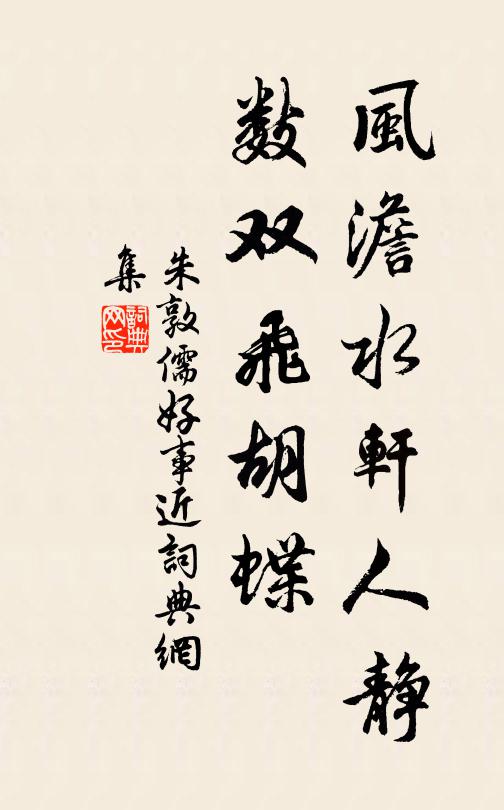 風澹水軒人静
数双飛胡蝶
朱敦儒好事近詞典網
集
詞典
网印